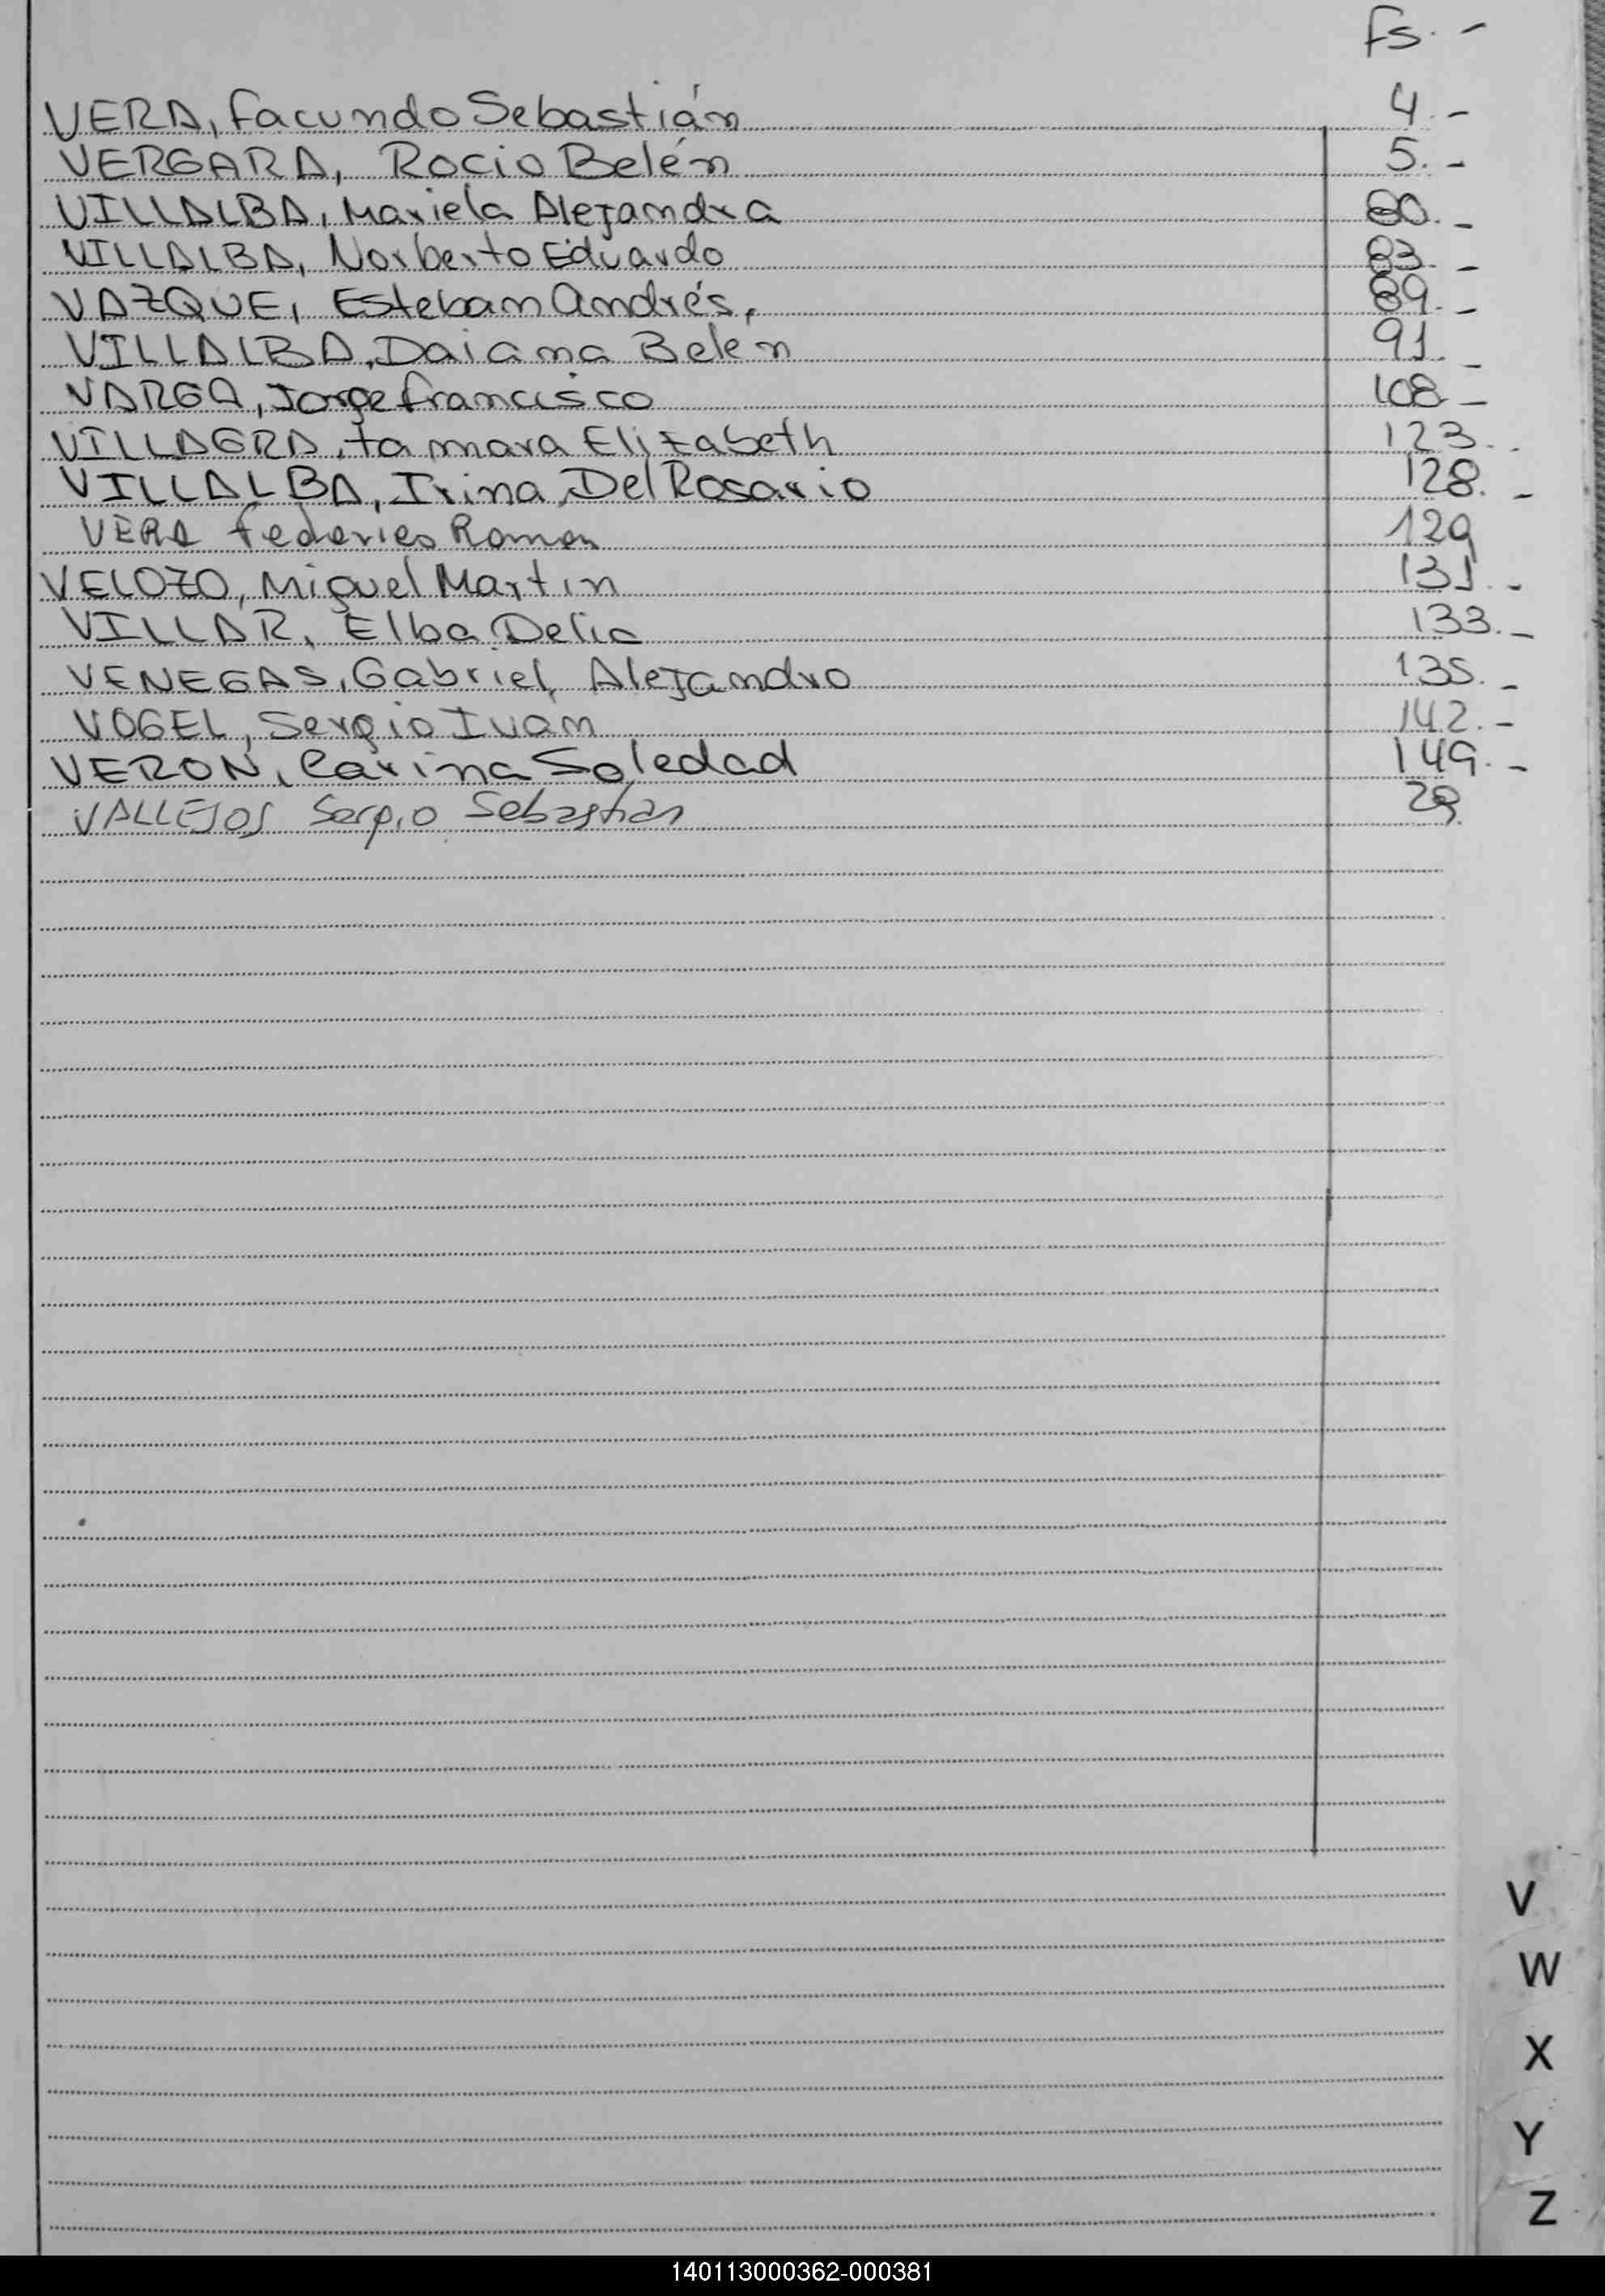 Fs. -
VERA, Facundo Sebastián 4. -
VERGARA, Rocio Belén 5. -
VILLALBA, Mariela Alejandra 80. -
VILLALBA, Norberto Eduardo 83. -
VAZQUE, Esteban Andrés, 89. -
VILLALBA, Daiana Belen 91. -
VARGA, Jorge Francisco 108 -
VILLAGRA, Tamara Elizabeth 123. -
VILLALBA, Irina Del Rosario 128. -
VERA Federico Ramon 129
VELOZO, Miguel Martin 131. -
VILLAR, Elba Delia 133. -
VENEGAS, Gabriel Alejandro 135. -
VOGEL, Sergio Ivan 142. -
VERON, Carina Soledad 149. -
VALLEJOS Sergio Sebastian 29
V
W
X
Y
Z
140113000362-000381